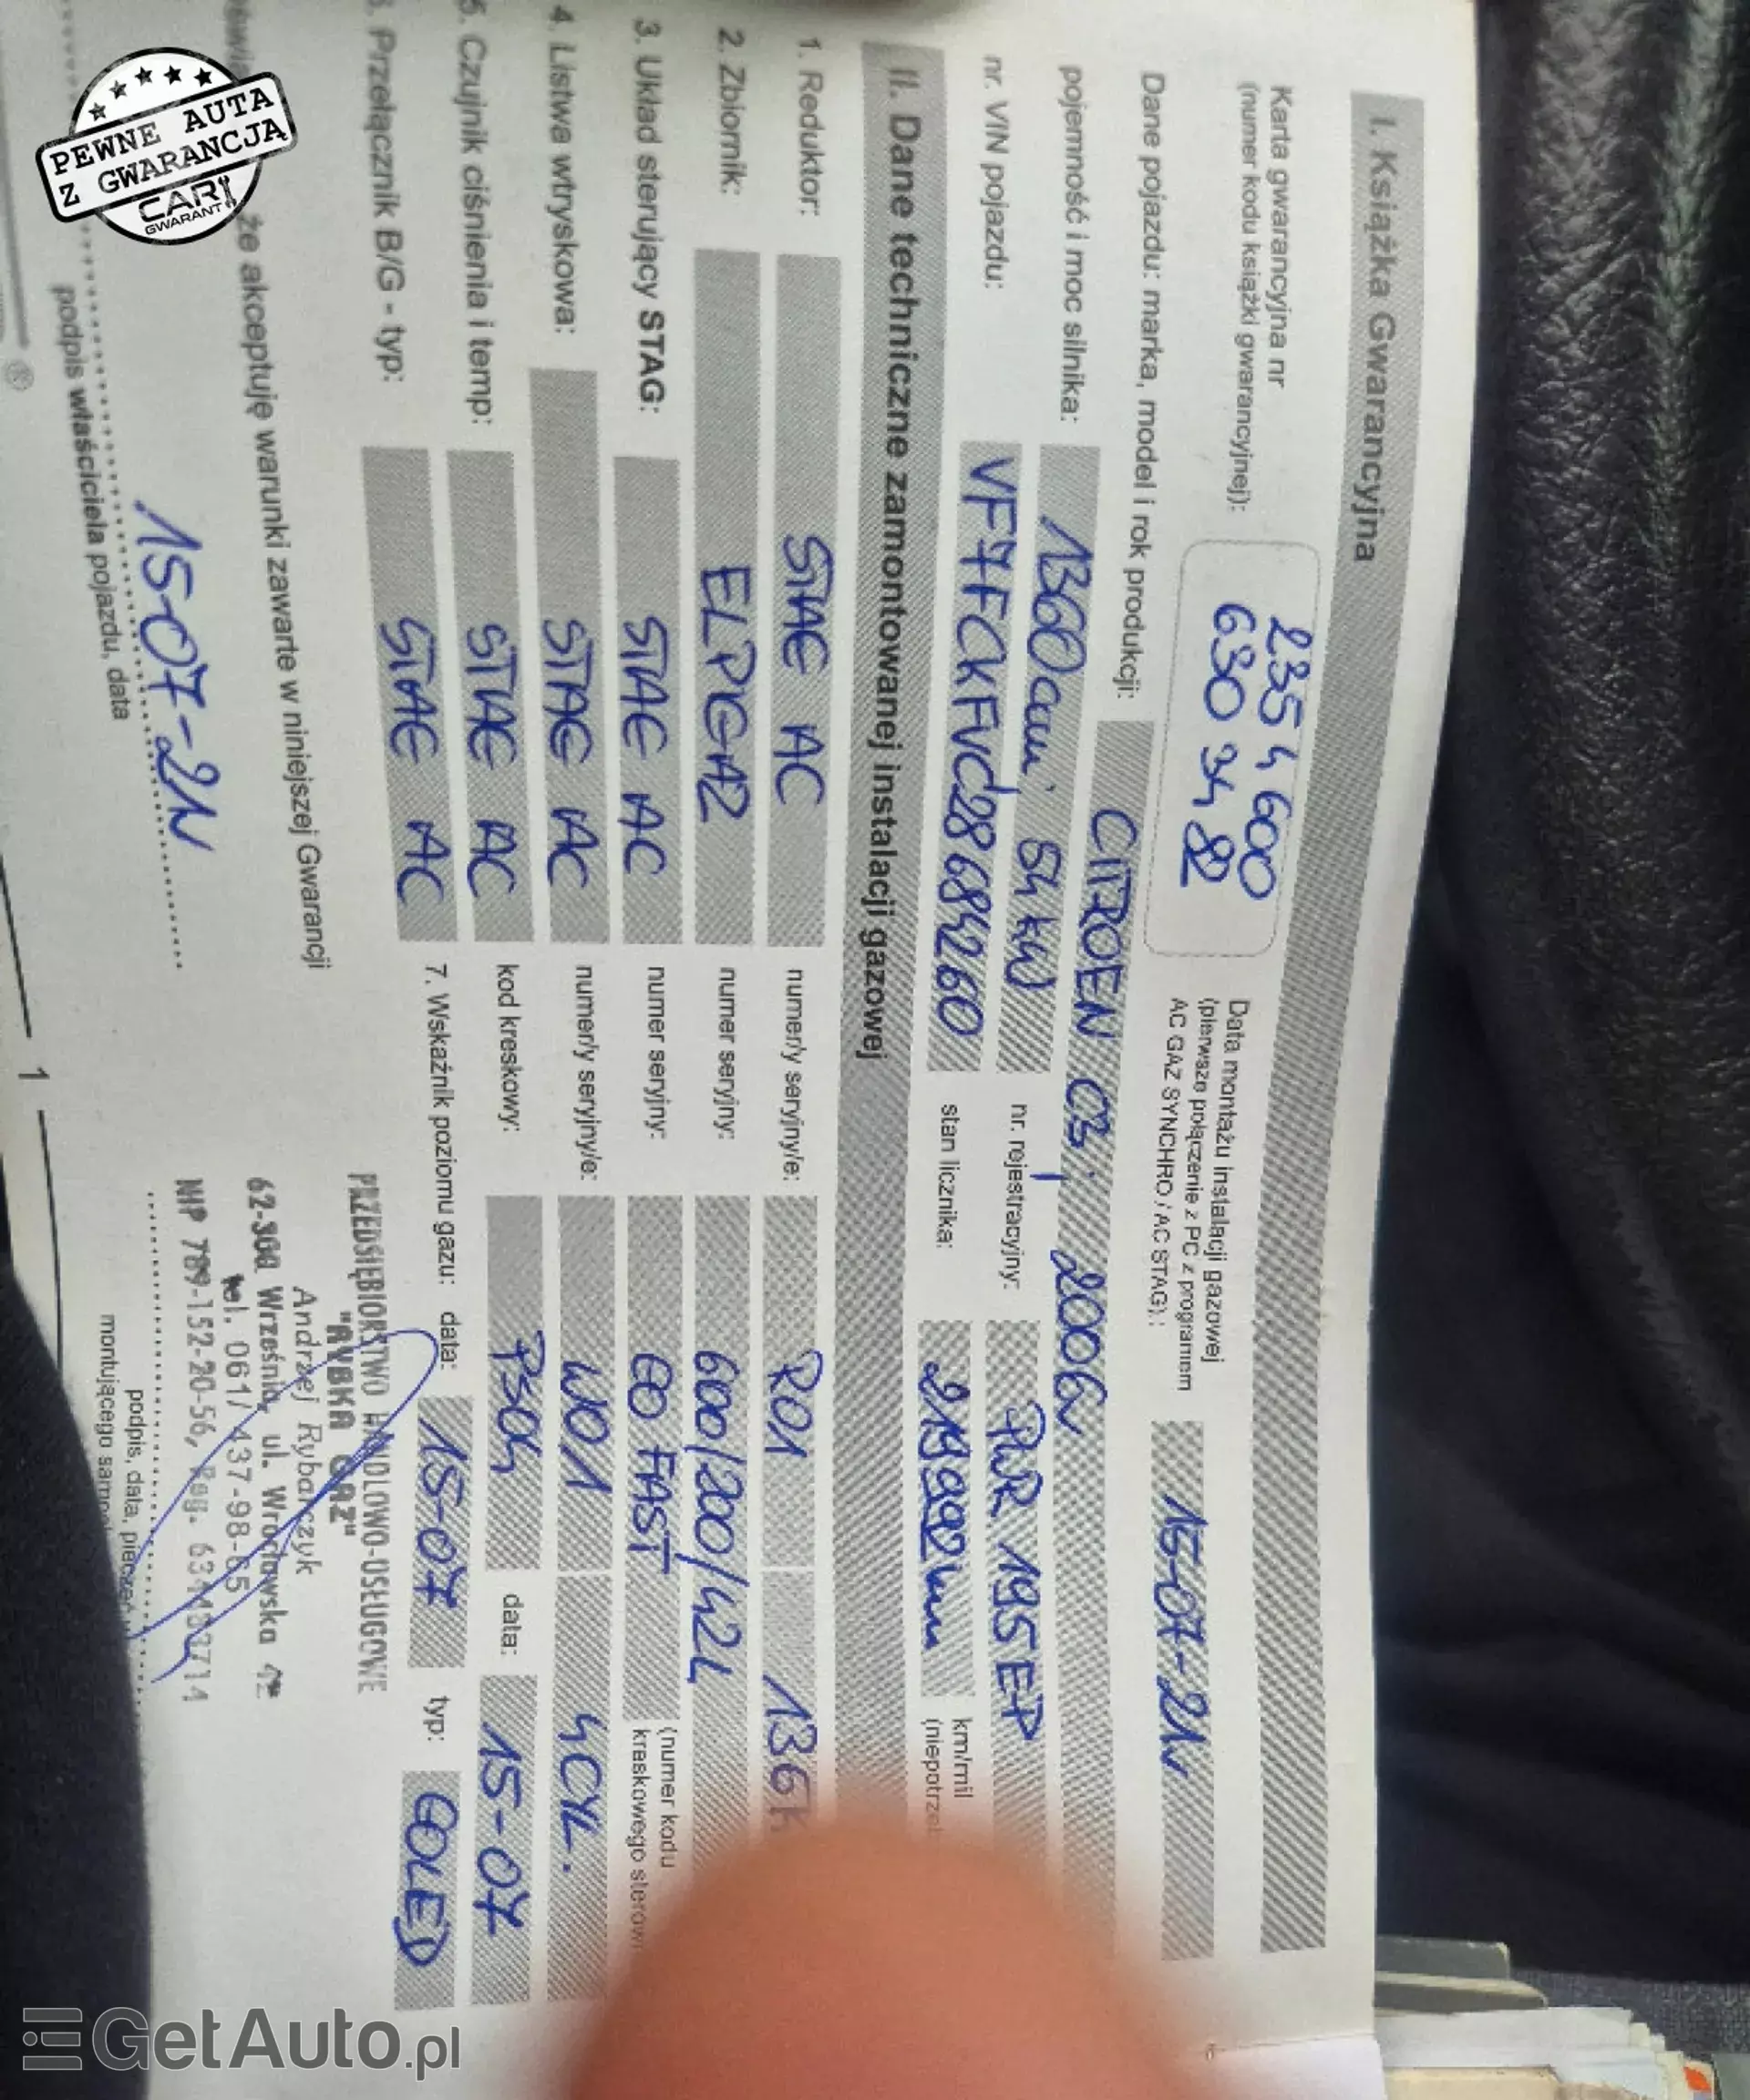 I. Książka Gwarancyjna
Karta gwarancyjna nr
(numer kodu książki gwarancyjnej):
235 4 600
630 34 82
Data montażu instalacji gazowej
(pierwsze połączenie z PC z programem
AC GAZ SYNCHRO / AC STAG):
15-07-21r
Dane pojazdu: marka, model i rok produkcji: CITROEN C3, 2006r
pojemność i moc silnika: 1360cm³ 54 kW nr. rejestracyjny: PWR 195EP
nr. VIN pojazdu: VF7FCKFVC28684260 stan licznika: km/mil
II. Dane techniczne zamontowanej instalacji gazowej
1. Reduktor: STAG AC numer/y seryjny/e: R01
2. Zbiornik: ELPIGAZ numer seryjny: 600/200/42L
3. Układ sterujący STAG: STAG AC numer seryjny: GO FAST (numer kodu
kraskowego
4. Listwa wtryskowa: STAG AC numer/y seryjny/e: W01 4CYL.
5. Czujnik ciśnienia i temp: STAG AC kod kreskowy: PS04 data: 15-07
6. Przełącznik B/G - typ: STAG AC 7. Wskaźnik poziomu gazu: data: 15-07 typ: GOLED
że akceptuję warunki zawarte w niniejszej Gwarancji
15-07-21r
podpis właściciela pojazdu, data
PRZEDSIĘBIORSTWO HANDLOWO-USŁUGOWE
"RYBKA GAZ"
Andrzej Rybarczyk
62-300 Września, ul. Wrocławska 42
tel. 061/ 437-98-65
NIP 789-152-20-56, Reg.
podpis, data,
montującego
1
PEWNE AUTA
Z GWARANCJĄ
CAR
GWARANT
GetAuto.pl